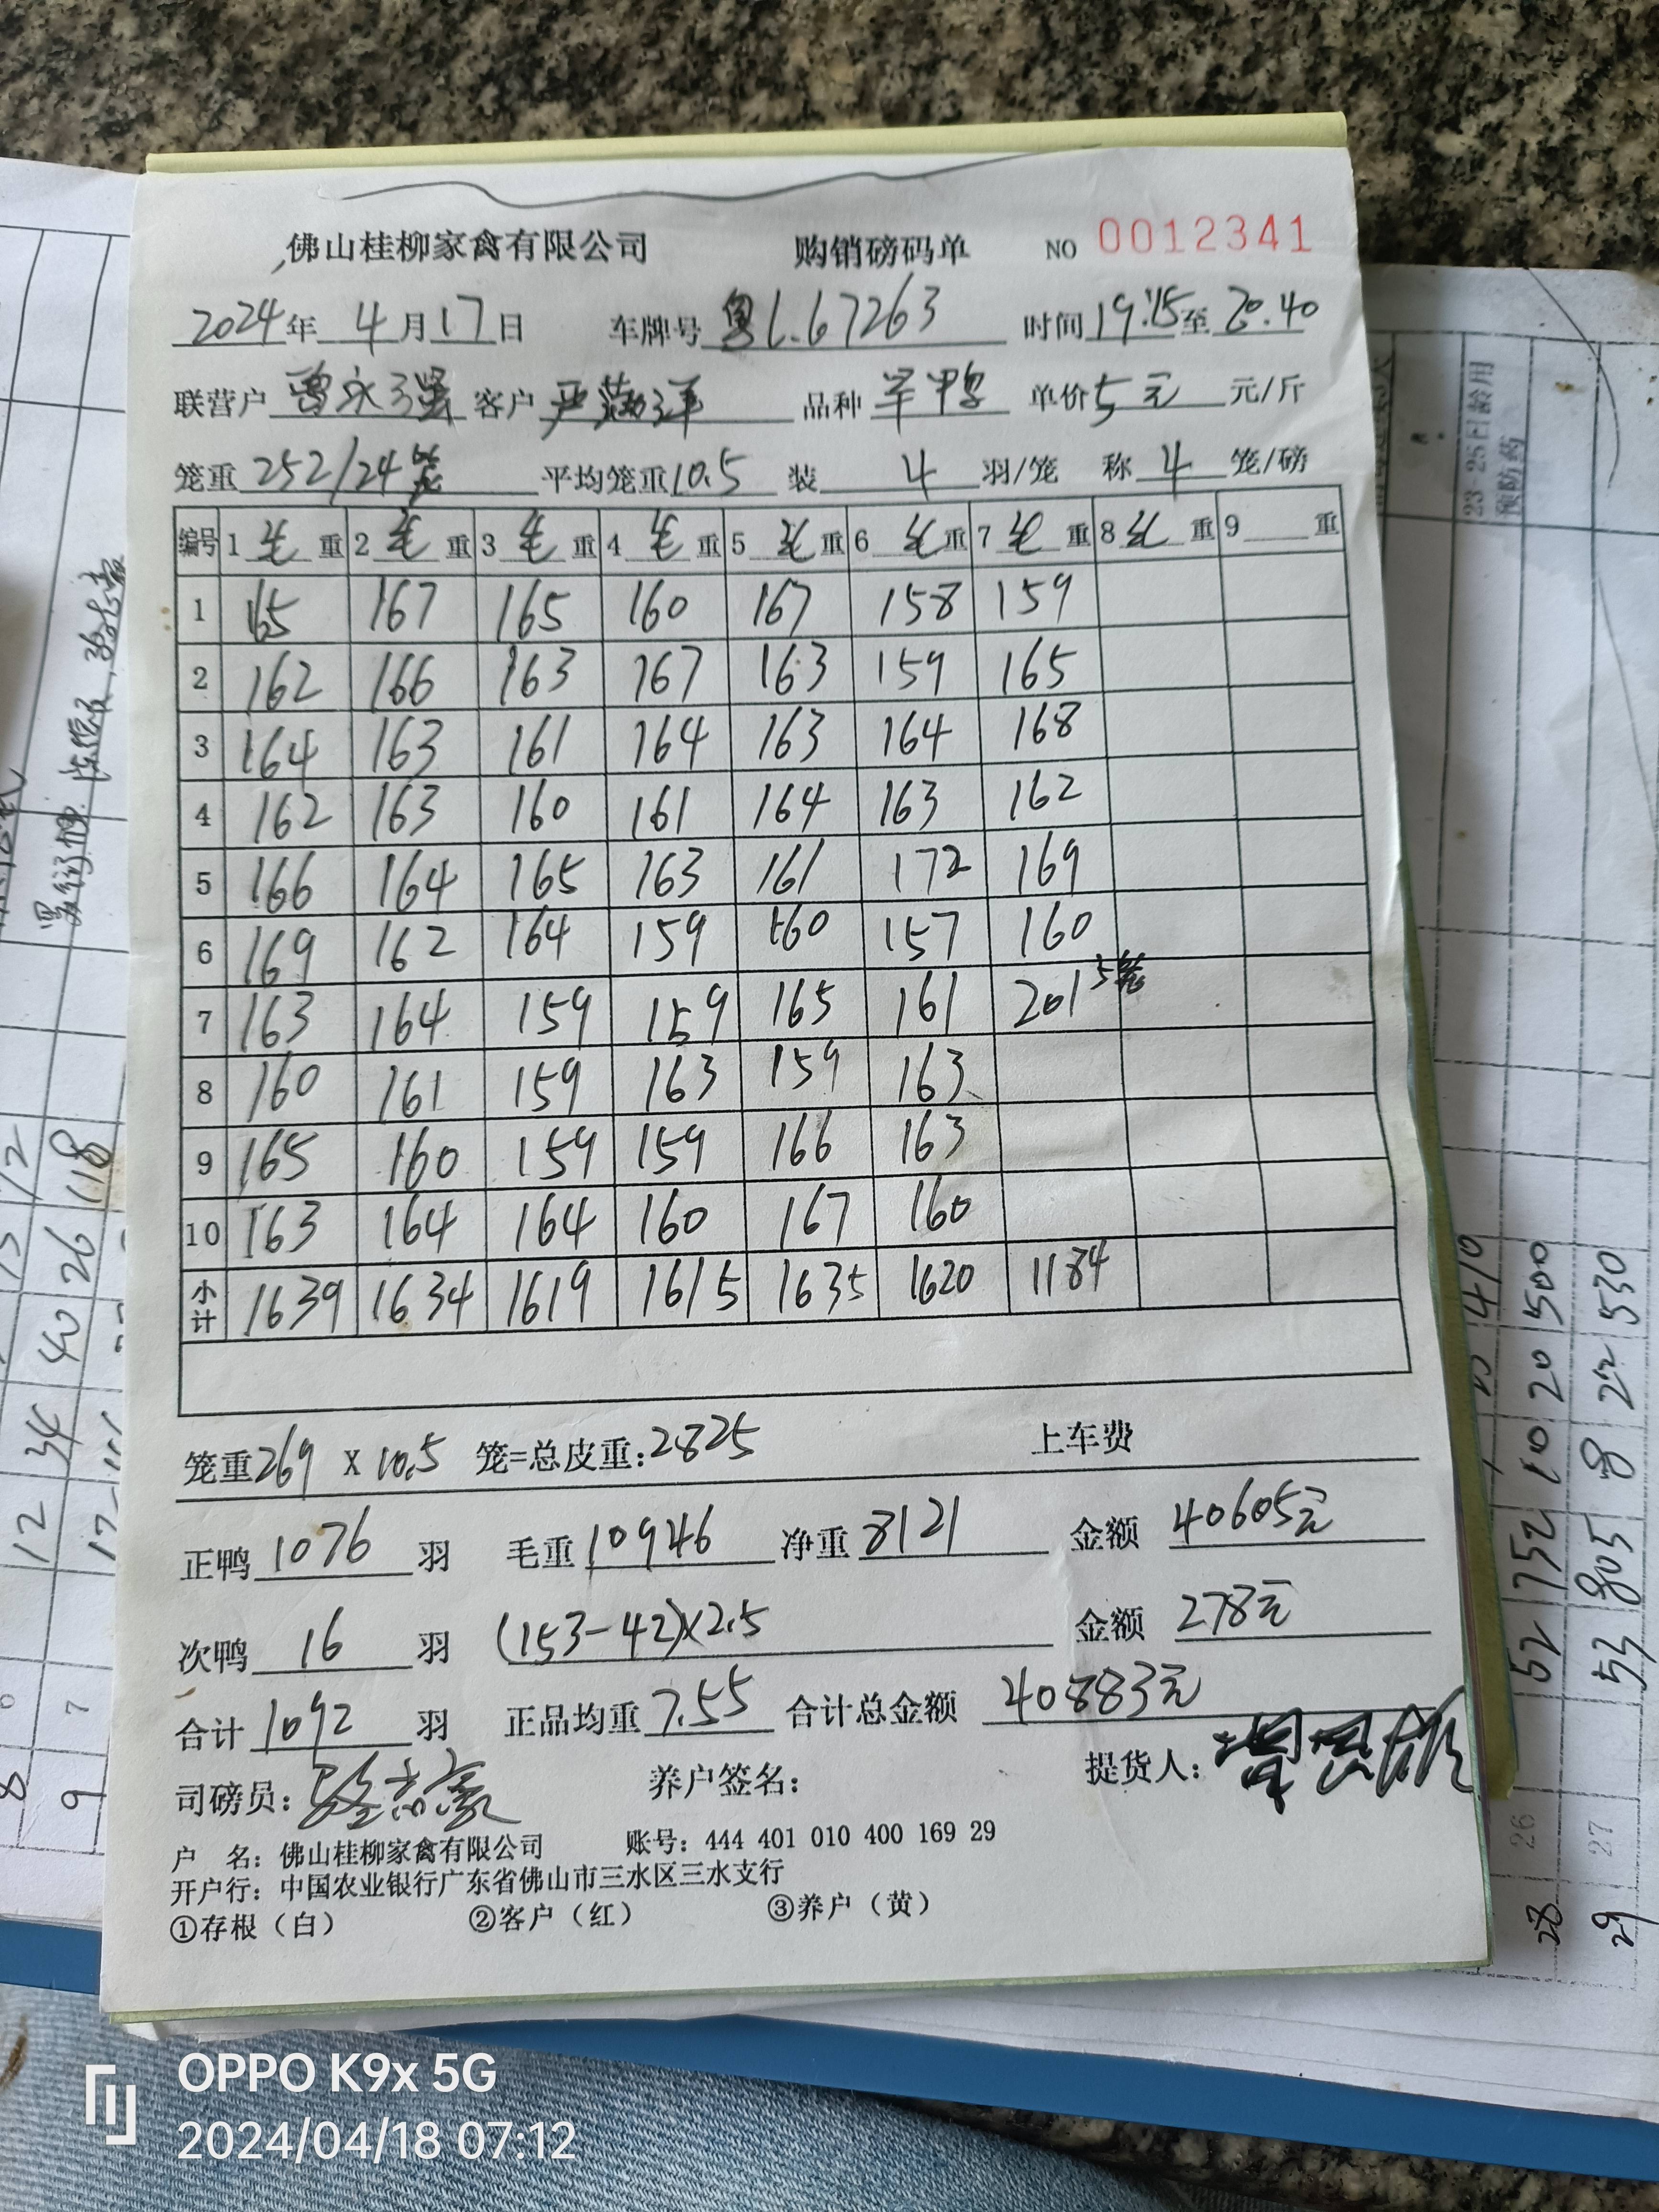 佛山桂柳家禽有限公司 购销磅码单 NO 0012341
2024年 4月17日 车牌号 粤L.67263 时间19:15至20.40
联营户 曾永强 客户 品种 单价5元 元/斤
笼重 252/24笼 平均笼重10.5 装 4 羽/笼 称 4 笼/磅
编号 1 毛 重 2 毛 重 3 毛 重 4 毛 重 5 毛 重 6 毛 重 7 毛 重 8 毛 重 9 重
1 165 167 165 160 167 158 159
2 162 166 163 167 163 159 165
3 164 163 161 164 163 164 168
4 162 163 160 161 164 163 162
5 166 164 165 163 161 172 169
6 169 162 164 159 160 157 160
7 163 164 159 159 165 161 201 5笼
8 160 161 159 163 159 163
9 165 160 159 159 166 163
10 163 164 164 160 167 160
小计 1639 1634 1619 1615 1635 1620 1184
笼重269 X 10.5 笼=总皮重:2825 上车费
正鸭 1076 羽 毛重 10946 净重 8121 金额 40605元
次鸭 16 羽 (153-42)×2.5 金额 278元
合计 1092 羽 正品均重 7.55 合计总金额 40883元
司磅员: 养户签名: 提货人:
户 名: 佛山桂柳家禽有限公司 账号: 444 401 010 400 169 29
开户行: 中国农业银行广东省佛山市三水区三水支行
①存根（白） ②客户（红） ③养户（黄）
23-25日龄用
预防药
12 34 40 26 118
410
52 752 10 20 500
53 805 8 22 530
8
9
7
26
27
28
29
OPPO K9x 5G
2024/04/18 07:12